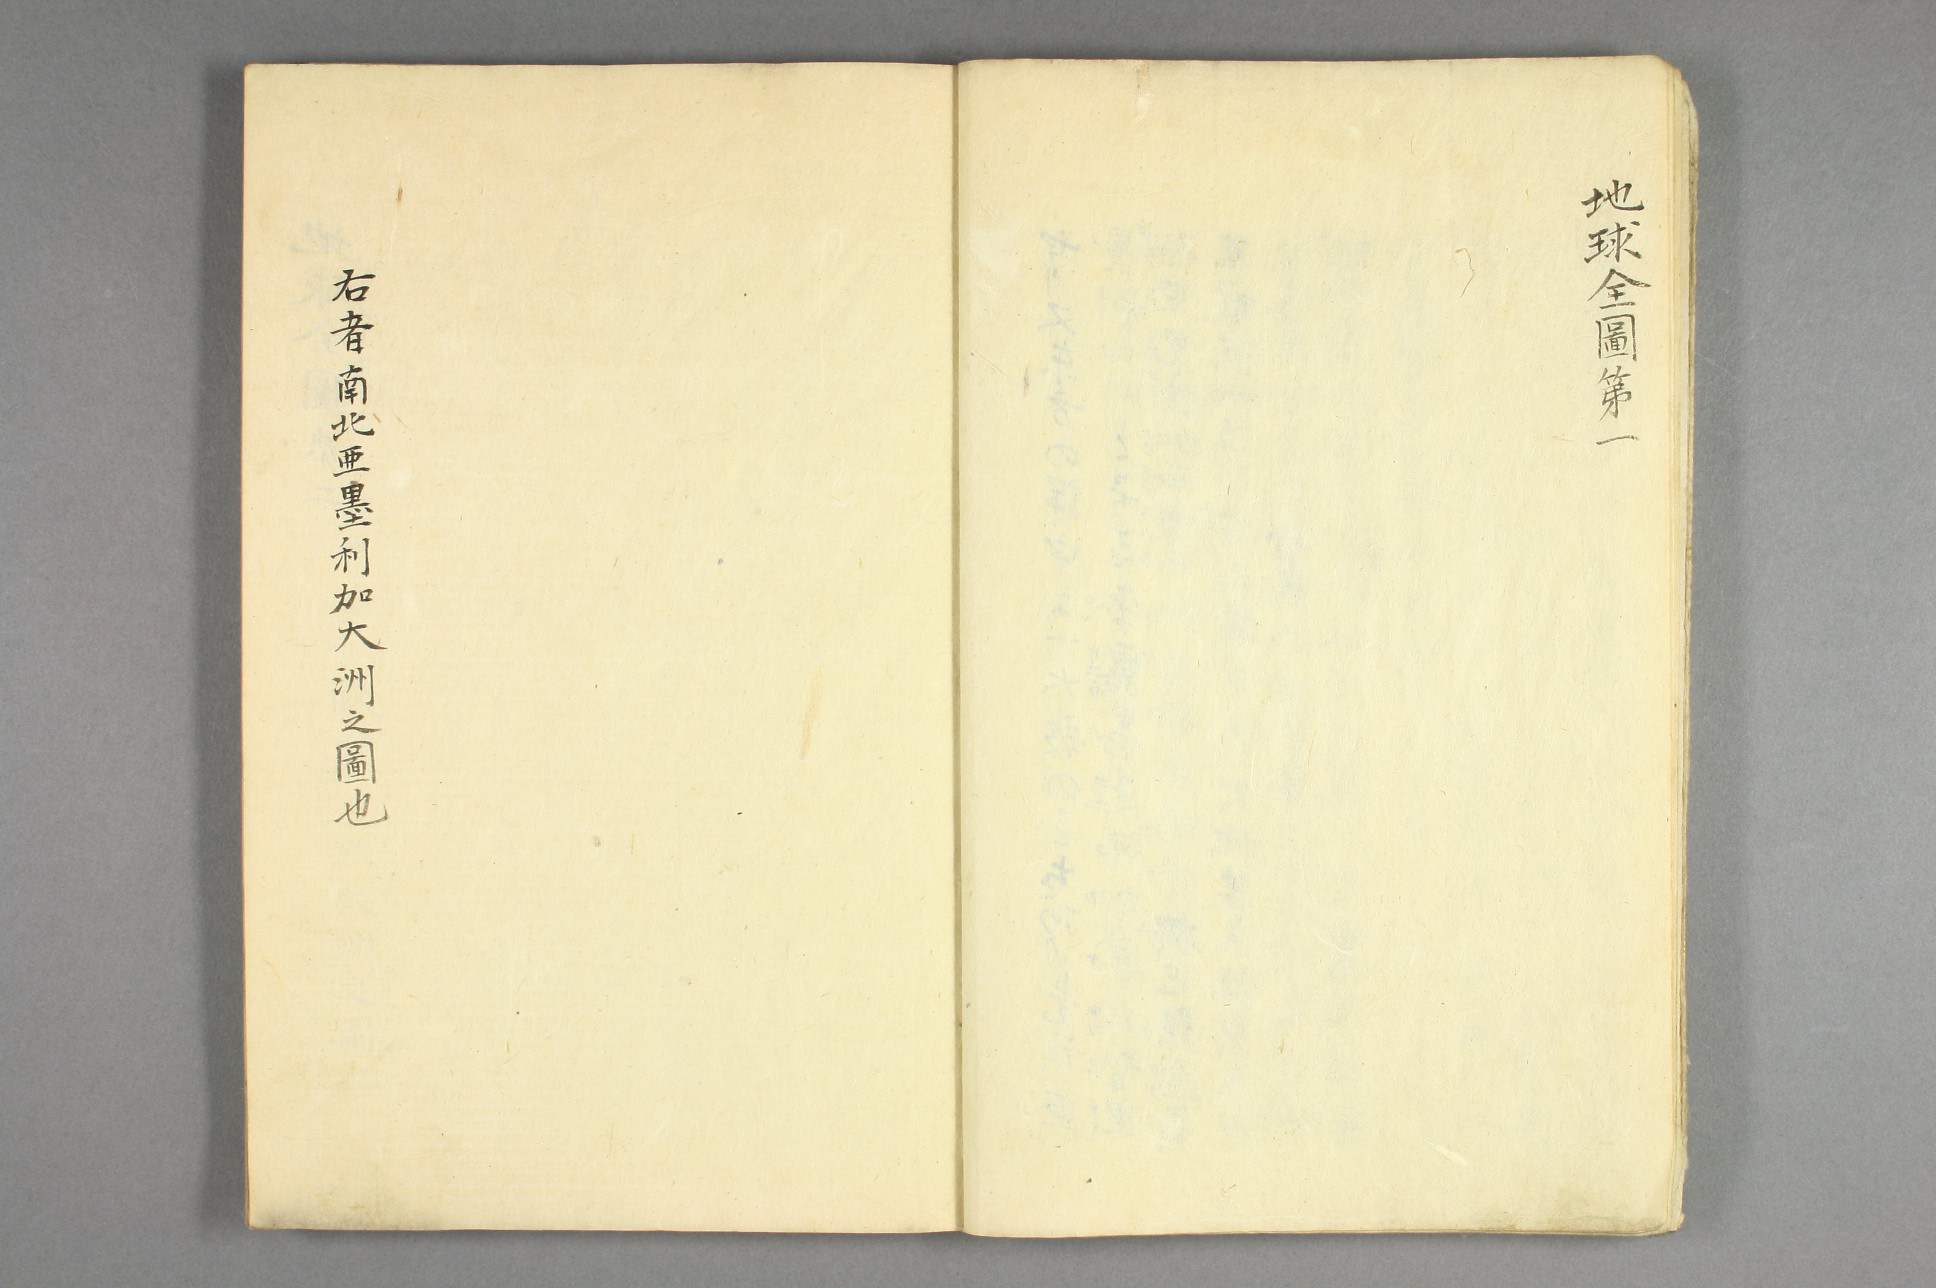 地球全圖第一
右者南北亜墨利加大洲之圖也